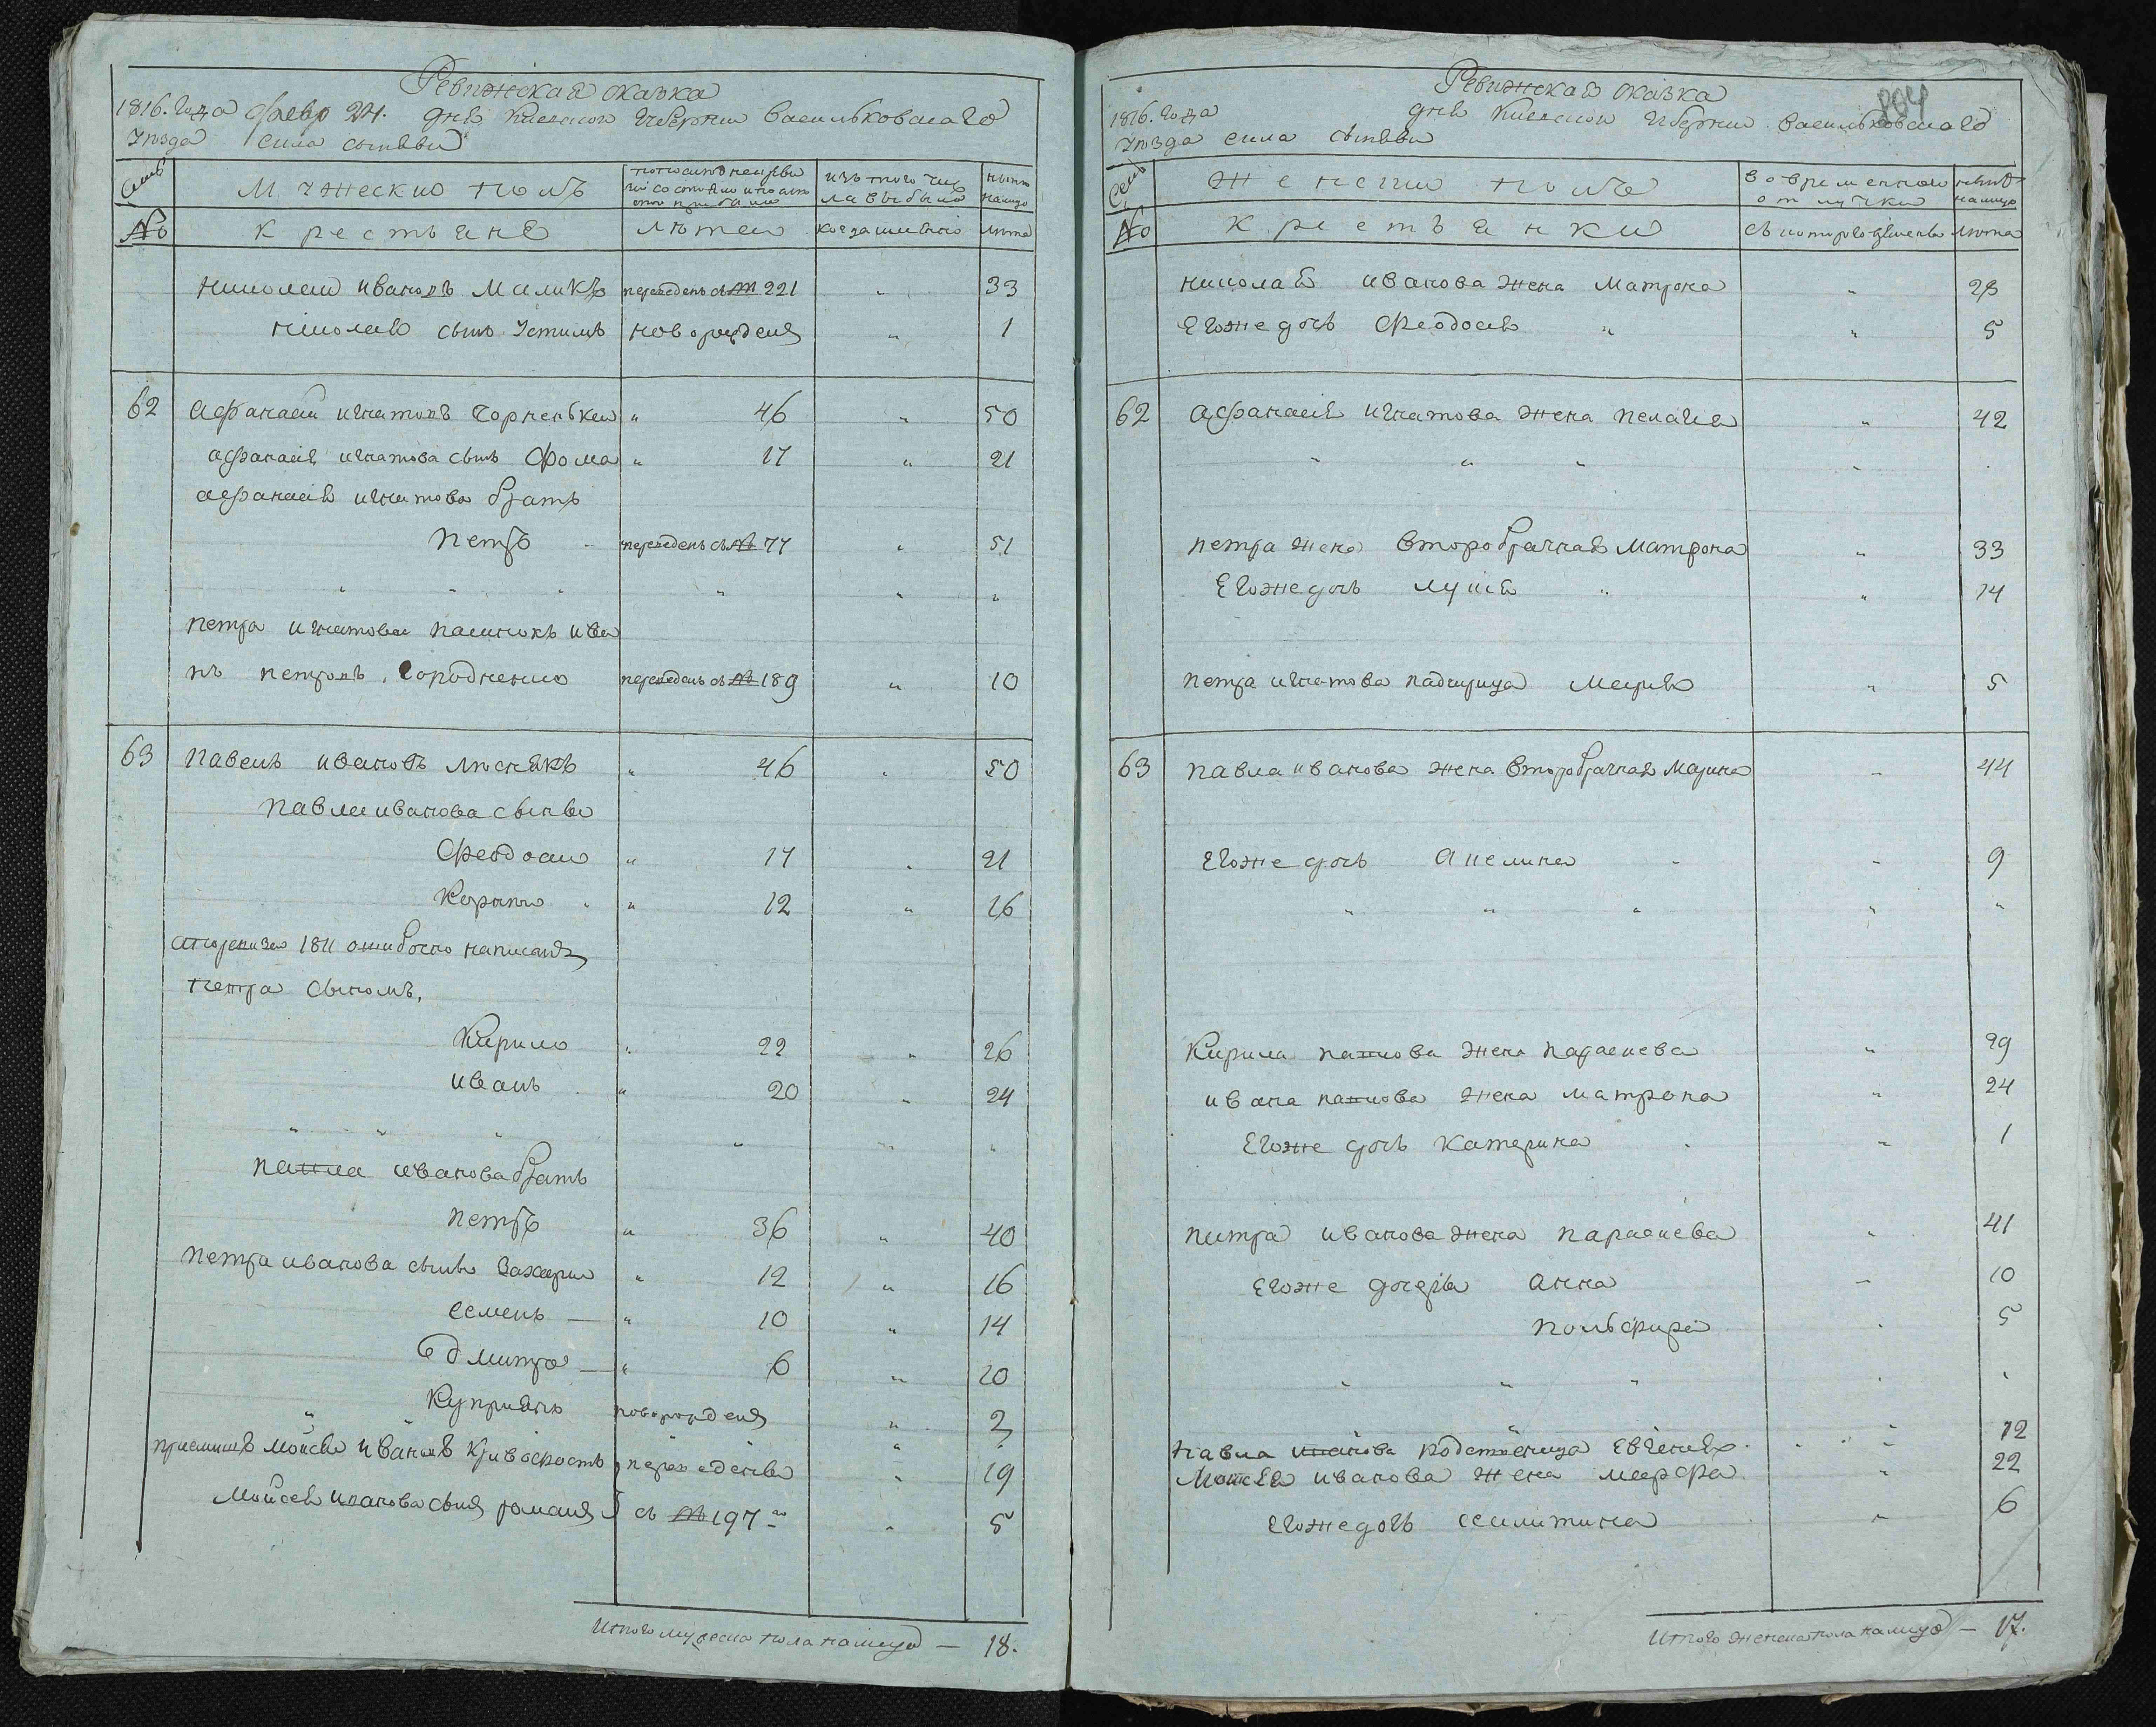 Ревижская сказка
1816. Года Февр 24. дня Киевской Губернии Васильковскаго
Уезда Села Сытняки
Семьи
Мужеский полъ
изъ того чис
ла выбыло
ныне
налицо
№
крестьяне
летъ
когда именно
лета
Николай Ивановъ Маликъ переведенъ съ № 221 " 33
Николая сынъ Устимъ новорожденъ " 1
62 Афанасий Игнатовъ Чорненький " 46 " 50
Афанасия Игнатова сынъ Фома " 17 " 21
Афанасия Игнатова братъ
Петръ - переведенъ съ № 77 " 51
" " " " " "
Петра Игнатова пасинокъ Ива
нъ Петровъ Городненко переведенъ съ № 189 " 10
63 Павелъ Ивановъ Люснякъ " 46 " 50
Павла Иванова сынъ
Феодосий " 17 " 21
Карпъ " 12 " 16
1811 ошибочно написанъ
Петра сыномъ,
Кирило " 22 " 26
Иванъ " 20 " 24
" " " " " "
Павла Иванова братъ
Петръ " 36 " 40
Петра Иванова сынъ Захарий " 12 " 16
Семенъ — " 10 " 14
Дмитро — " 6 " 10
Куприянъ новорожденъ " 2
приемышъ Мойсей Ивановъ переведены " 19
Мойсея Иванова сынъ Романъ съ № 197 " 5
Итого мужеска пола налицо — 18.
204
Ревижская сказка
1816. Года дня Киевской Губернии Васильковскаго
Уезда Села Сытняки
Семьи
Женский полъ
во временной
отлучки
ныне
налицо
№
крестьянки
съ котораго времени
лета
Николая Иванова жена Матрона " 28
Егоже дочь Феодосия " " 5
62 Афанасия Игнатова жена Пелагия " 42
" " " " "
Петра жена второбрачная Матрона " 33
Егоже дочь Лукия " " 14
Петра Игнатова падщерица Мария " 5
63 Павла Иванова жена второбрачная Марина " 44
Егоже дочь Анелина - " 9
" " " " "
Кирила Павлова жена Параскева " 29
Ивана Павлова жена Матрона " 24
Егоже дочь Катерина " 1
Петра Иванова жена Параскева " 41
Егоже дочери Анна — 10
5
" " " " "
Павла Иванова Евгения " 12
Мойсея Иванова жена Марфа " 22
Егоже дочь " 6
Итого женска пола налицо — 17.